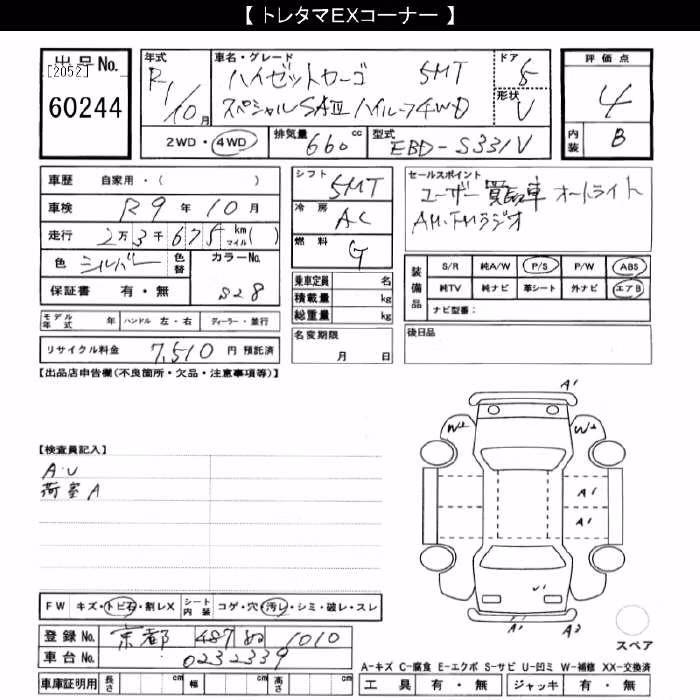 【 トレタマEXコーナー 】
出品No.
[2052]
60244
年式
R1/10月
車名・グレード
ハイゼットカーゴ 5MT
スペシャルSAⅢ ハイルーフ4WD
ドア
5
形状
V
2WD・4WD
排気量 660 cc
型式 EBD-S331V
評価点
4
内装 B
車歴 自家用・( )
車検 R9年10月
走行 2万3千675 km マイル( )
色 シルバー 色替
カラーNo.
S28
保証書 有・無
モデル年式 年 ハンドル 左・右 ディーラー・並行
リサイクル料金 7,510 円 預託済
シフト 5MT
冷房 AC
燃料 G
乗車定員 名
積載量 kg
総重量 kg
名変期限
月 日
セールスポイント
ユーザー買取車 オートライト
AM・FMラジオ
装備品
S/R 純A/W P/S P/W ABS
純TV 純ナビ 革シート 外ナビ エアB
ナビ型番:
後日品
【出品店申告欄(不良箇所・欠品・注意事項等)】
【検査員記入】
A・U
荷室A
A1
W2 W2
A1
A1
U1
A1 A2
スペア
FW キズ・トビ石・割レX シート内装 コゲ・穴・汚レ・シミ・破レ・スレ
登録No. 京都 487 1010
車台No. 0232339
車庫証明用 長さ cm 幅 cm 高さ cm
A-キズ C-腐食 E-エクボ S-サビ U-凹ミ W-補修 XX-交換済
工具 有・無 ジャッキ 有・無